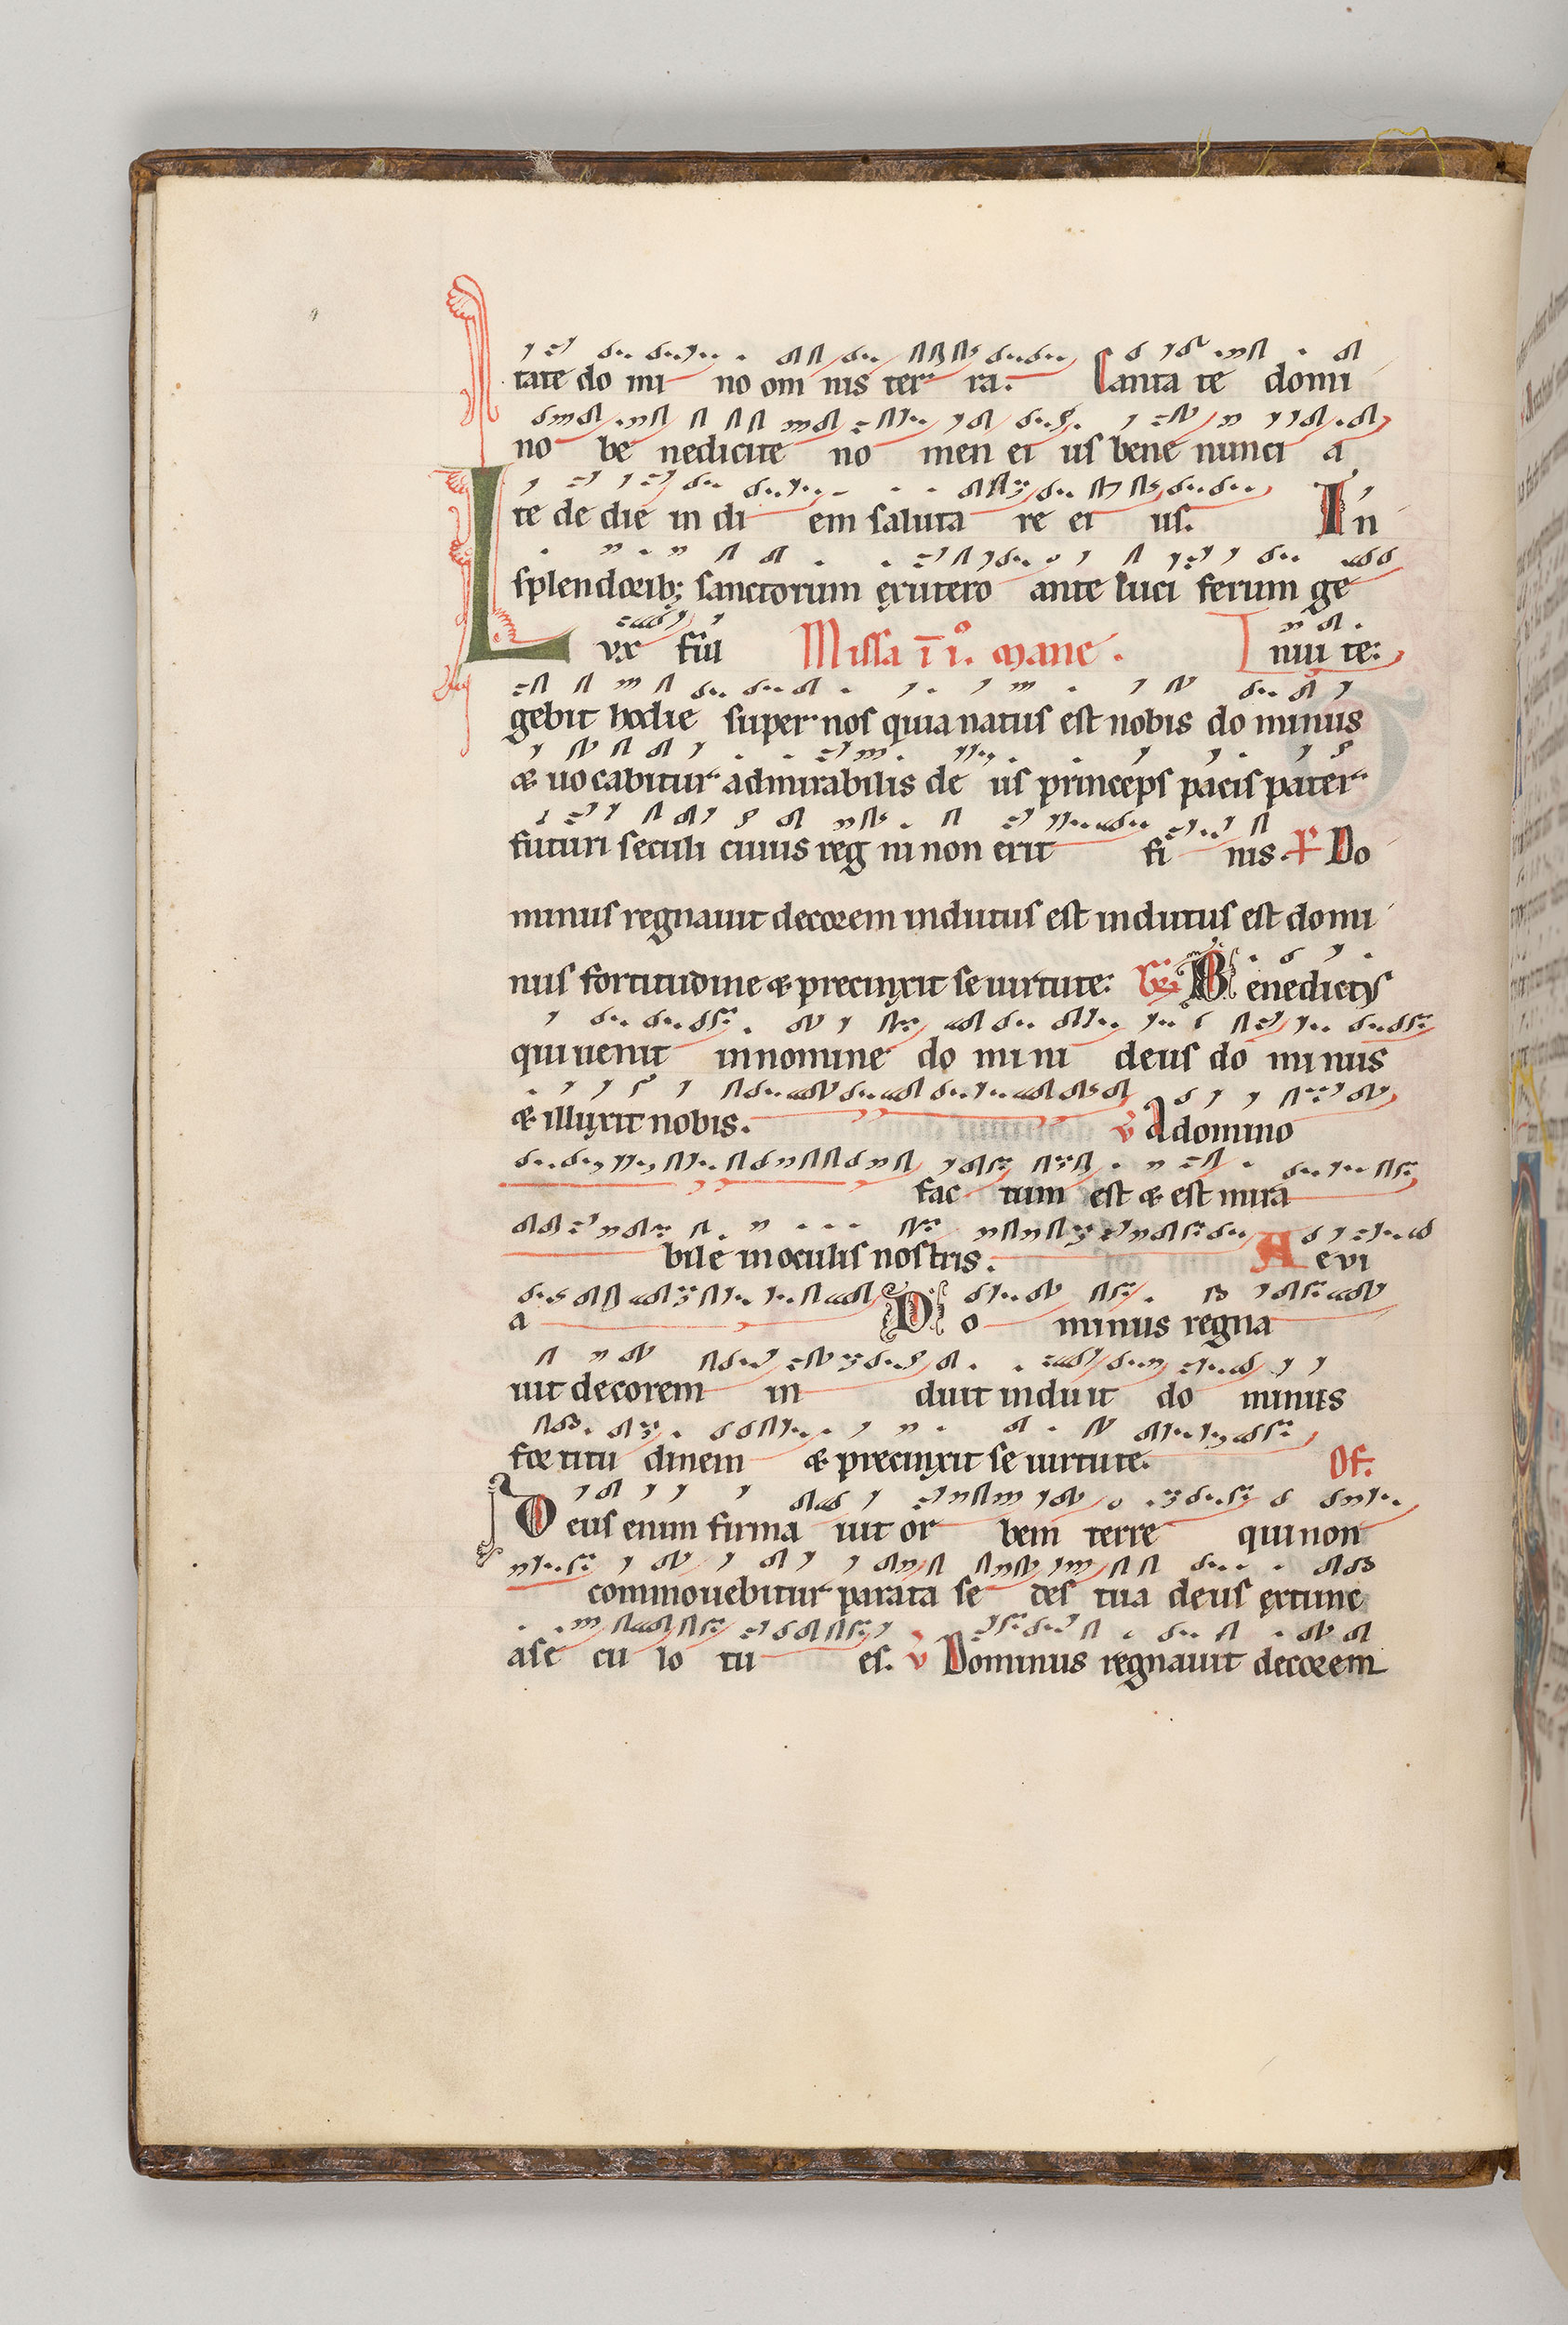 tate do mi no om nis ter ra. Canta te domi
no be nedicite no men ei us bene nunci a
te de die in di em saluta re ei us. In
splendorib; sanctorum exutero ante luci ferum ge
Lvx fui Missa in i. mane. nui te:
gebit hodie super nos quia natus est nobis do minus
& uocabitur admirabilis de us princeps pacis pater
futuri seculi cuius reg ni non erit fi nis. Ps Do
minus regnauit decorem indutus est indutus est domi
nus fortitudine & precinxit se uirtute: Benedictus
qui uenit innomine do mini deus do minus
& illuxit nobis. v A domino
fac tum est & est mira
bile in oculis nostris. A evi
a Do minus regna
uit decorem in duit induit do minus
for titu dinem & precinxit se uirtute. Of.
Deus enim firma uit or bem terre qui non
commouebitur parata se des tua deus extunc
a se cu lo tu es. v Dominus regnauit decorem